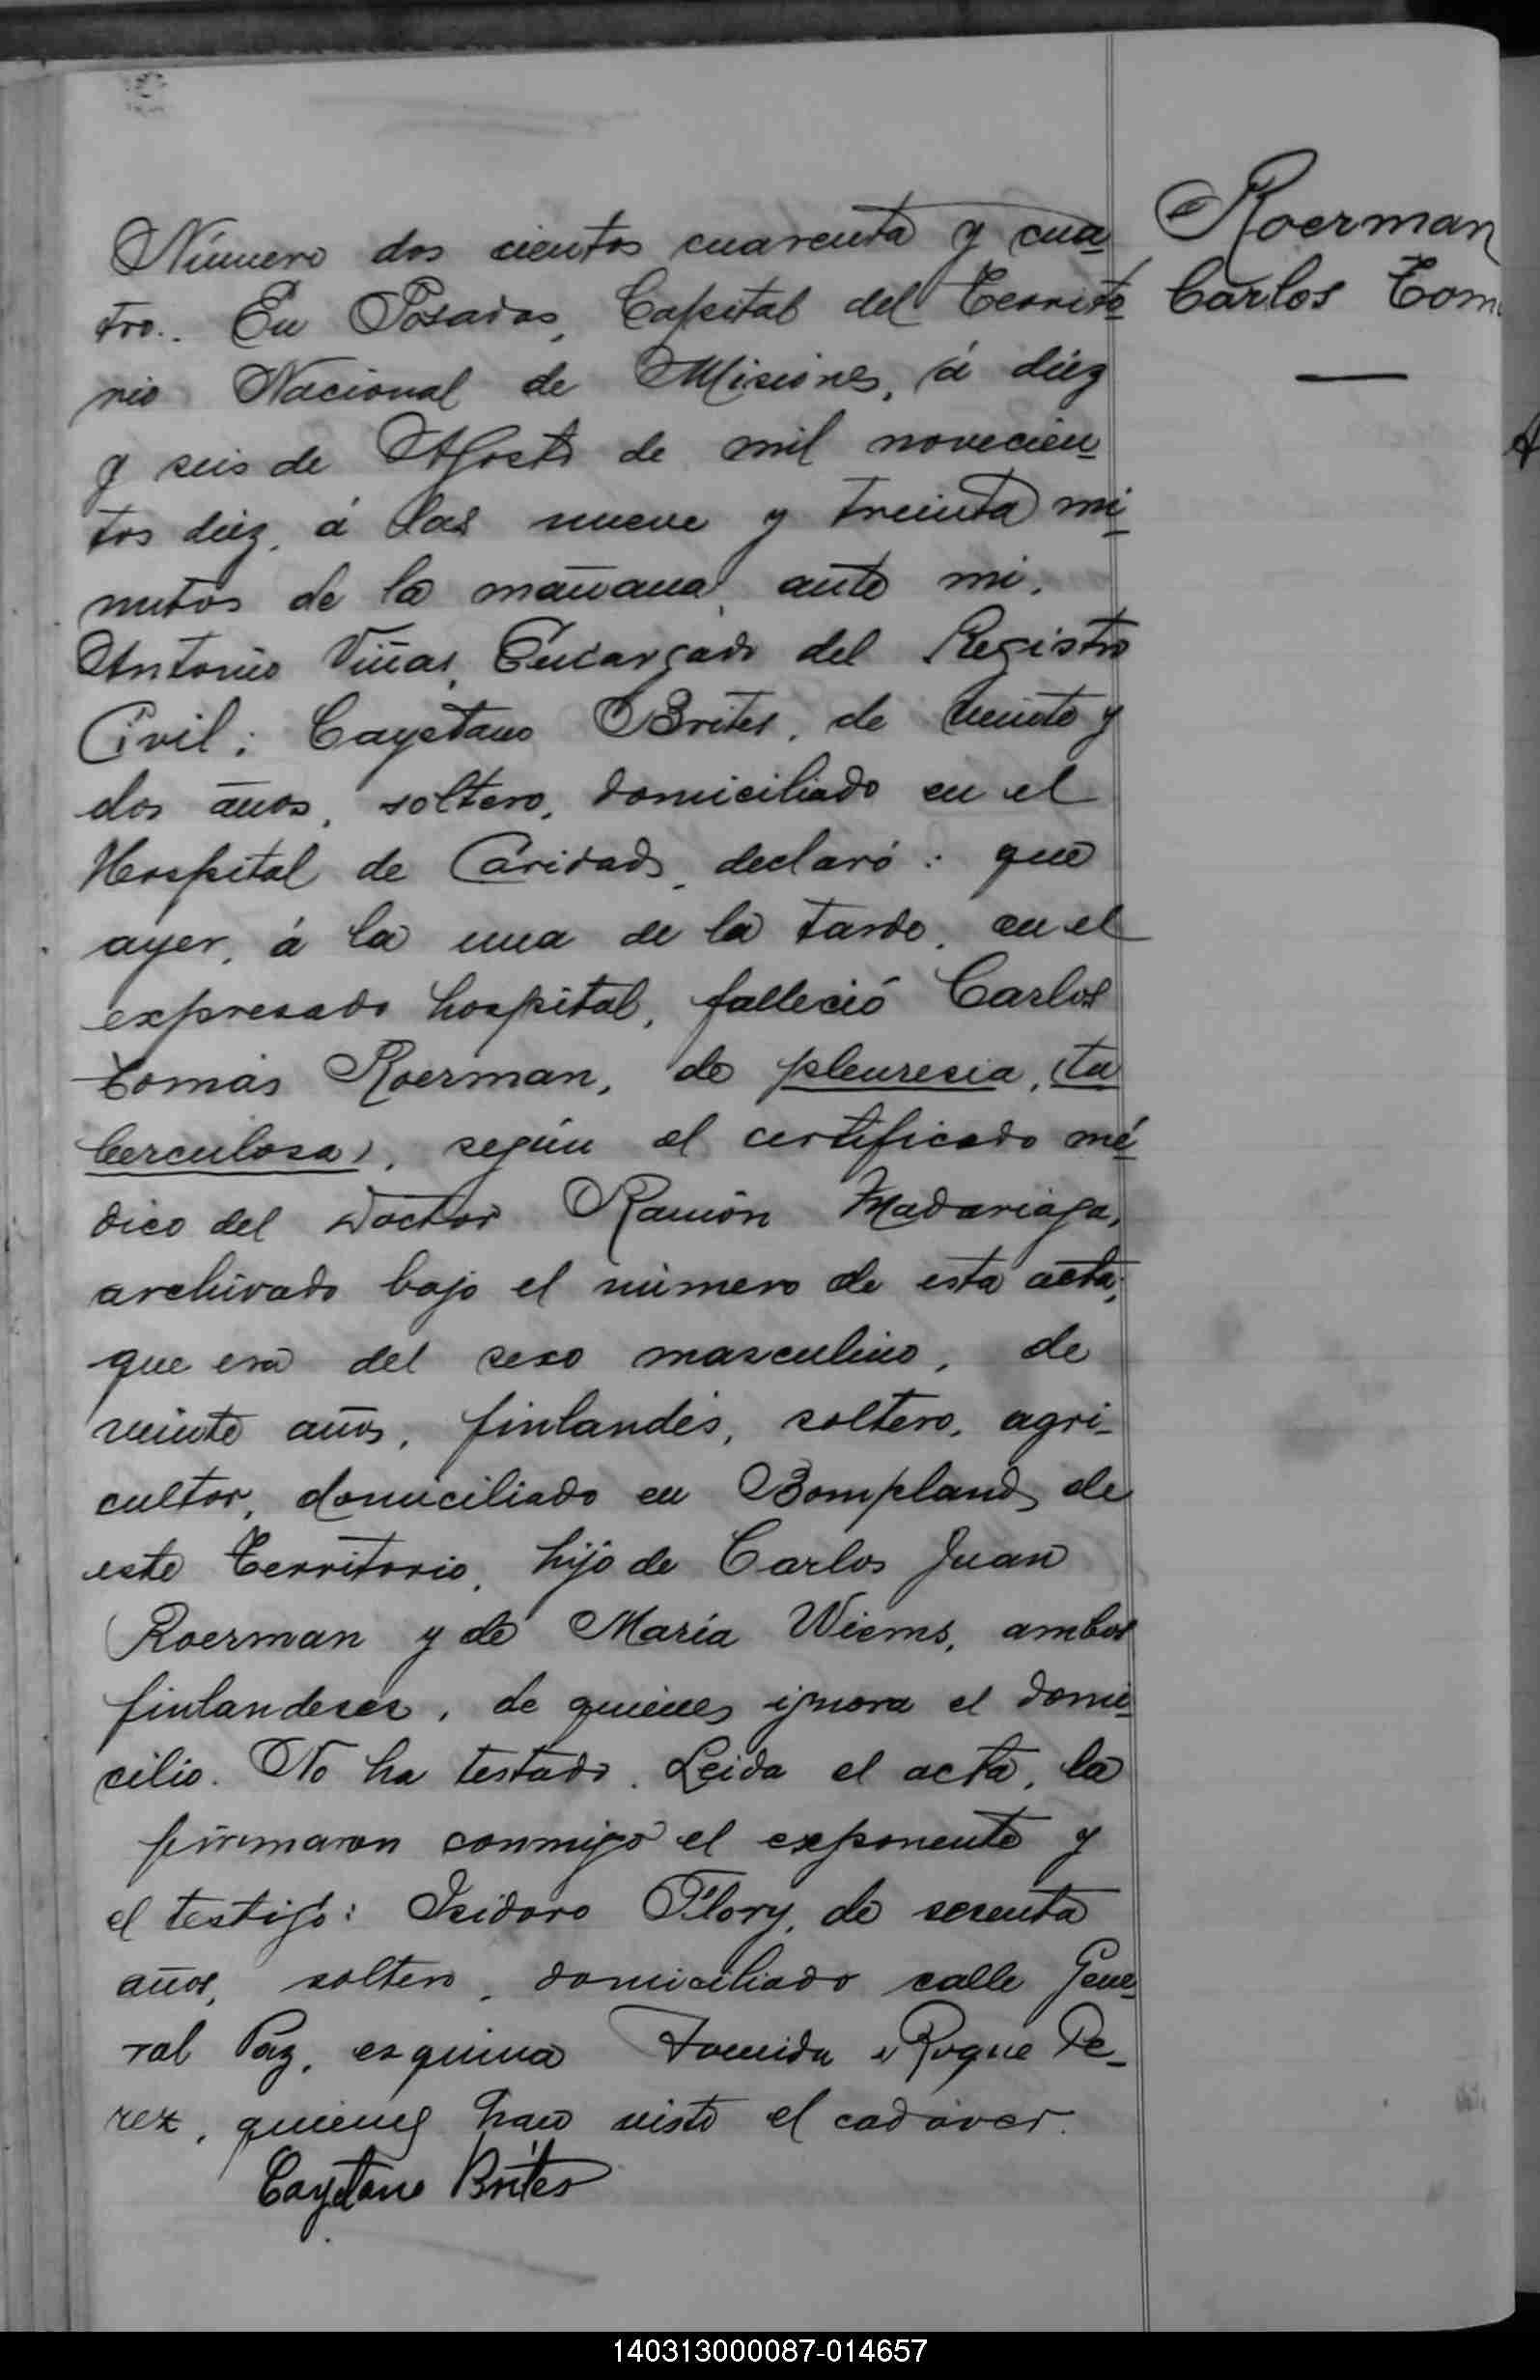 Roerman
Carlos Tom
Número dos cientos cuarenta y cua-
tro.. En Posadas, Capital del Territo-
rio Nacional de Misiones, á diéz
y seis de Agosto de mil novecien-
tos diéz, á las nueve y treinta mi-
nutos de la mañana, ante mi,
Antonio Viñas, Encargado del Registro
Civil; Cayetano Brites, de veinte y
dos años, soltero, domiciliado en el
Hospital de Caridad, declaró: que
ayer, á la una de la tarde, en el
expresado hospital, falleció Carlos
Tomás Roerman, de pleuresia, (tu
berculosa), según el certificado mé-
dico del Doctor Ramón Madariaga,
archivado bajo el número de esta acta;
que era del sexo masculino, de
veinte años, finlandés, soltero, agri-
cultor, domiciliado en Bompland, de
este Territorio, hijo de Carlos Juan
Roerman y de María Wiems, ambos
finlandeses, de quienes ignora el domi-
cilio. No ha testado. Leida el acta, la
firmaron conmigo el exponente y
el testigo: Isidoro Flory, de sesenta
años, soltero, domiciliado calle Gene-
ral Paz, esquina Roque Pe-
rez, quienes han visto el cadáver.
Cayetano Brites
140313000087-014657